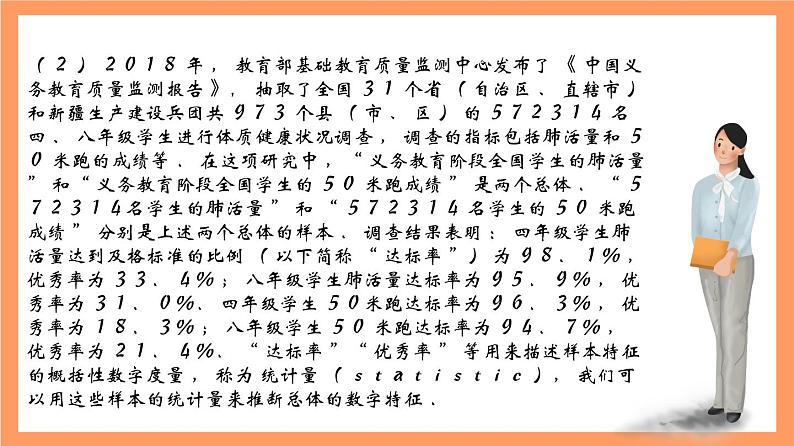 （2）2018年，教育部基础教育质量监测中心发布了《中国义
务教育质量监测报告》，抽取了全国31个省（自治区、直辖市）
和新疆生产建设兵团共973个县（市、区）的572314名
四、八年级学生进行体质健康状况调查，调查的指标包括肺活量和5
0米跑的成绩等．在这项研究中，“义务教育阶段全国学生的肺活量
”和“义务教育阶段全国学生的50米跑成绩”是两个总体．“5
72314名学生的肺活量”和“572314名学生的50米跑
成绩”分别是上述两个总体的样本．调查结果表明：四年级学生肺
活量达到及格标准的比例（以下简称“达标率”）为98．1%，
优秀率为33．4%；八年级学生肺活量达标率为95．9%，优
秀率为31．0%．四年级学生50米跑达标率为96．3%，优
秀率为18．3%；八年级学生50米跑达标率为94．7%，
优秀率为21．4%．“达标率”“优秀率”等用来描述样本特征
的概括性数字度量，称为统计量（statistic），我们可
以用这些样本的统计量来推断总体的数字特征．